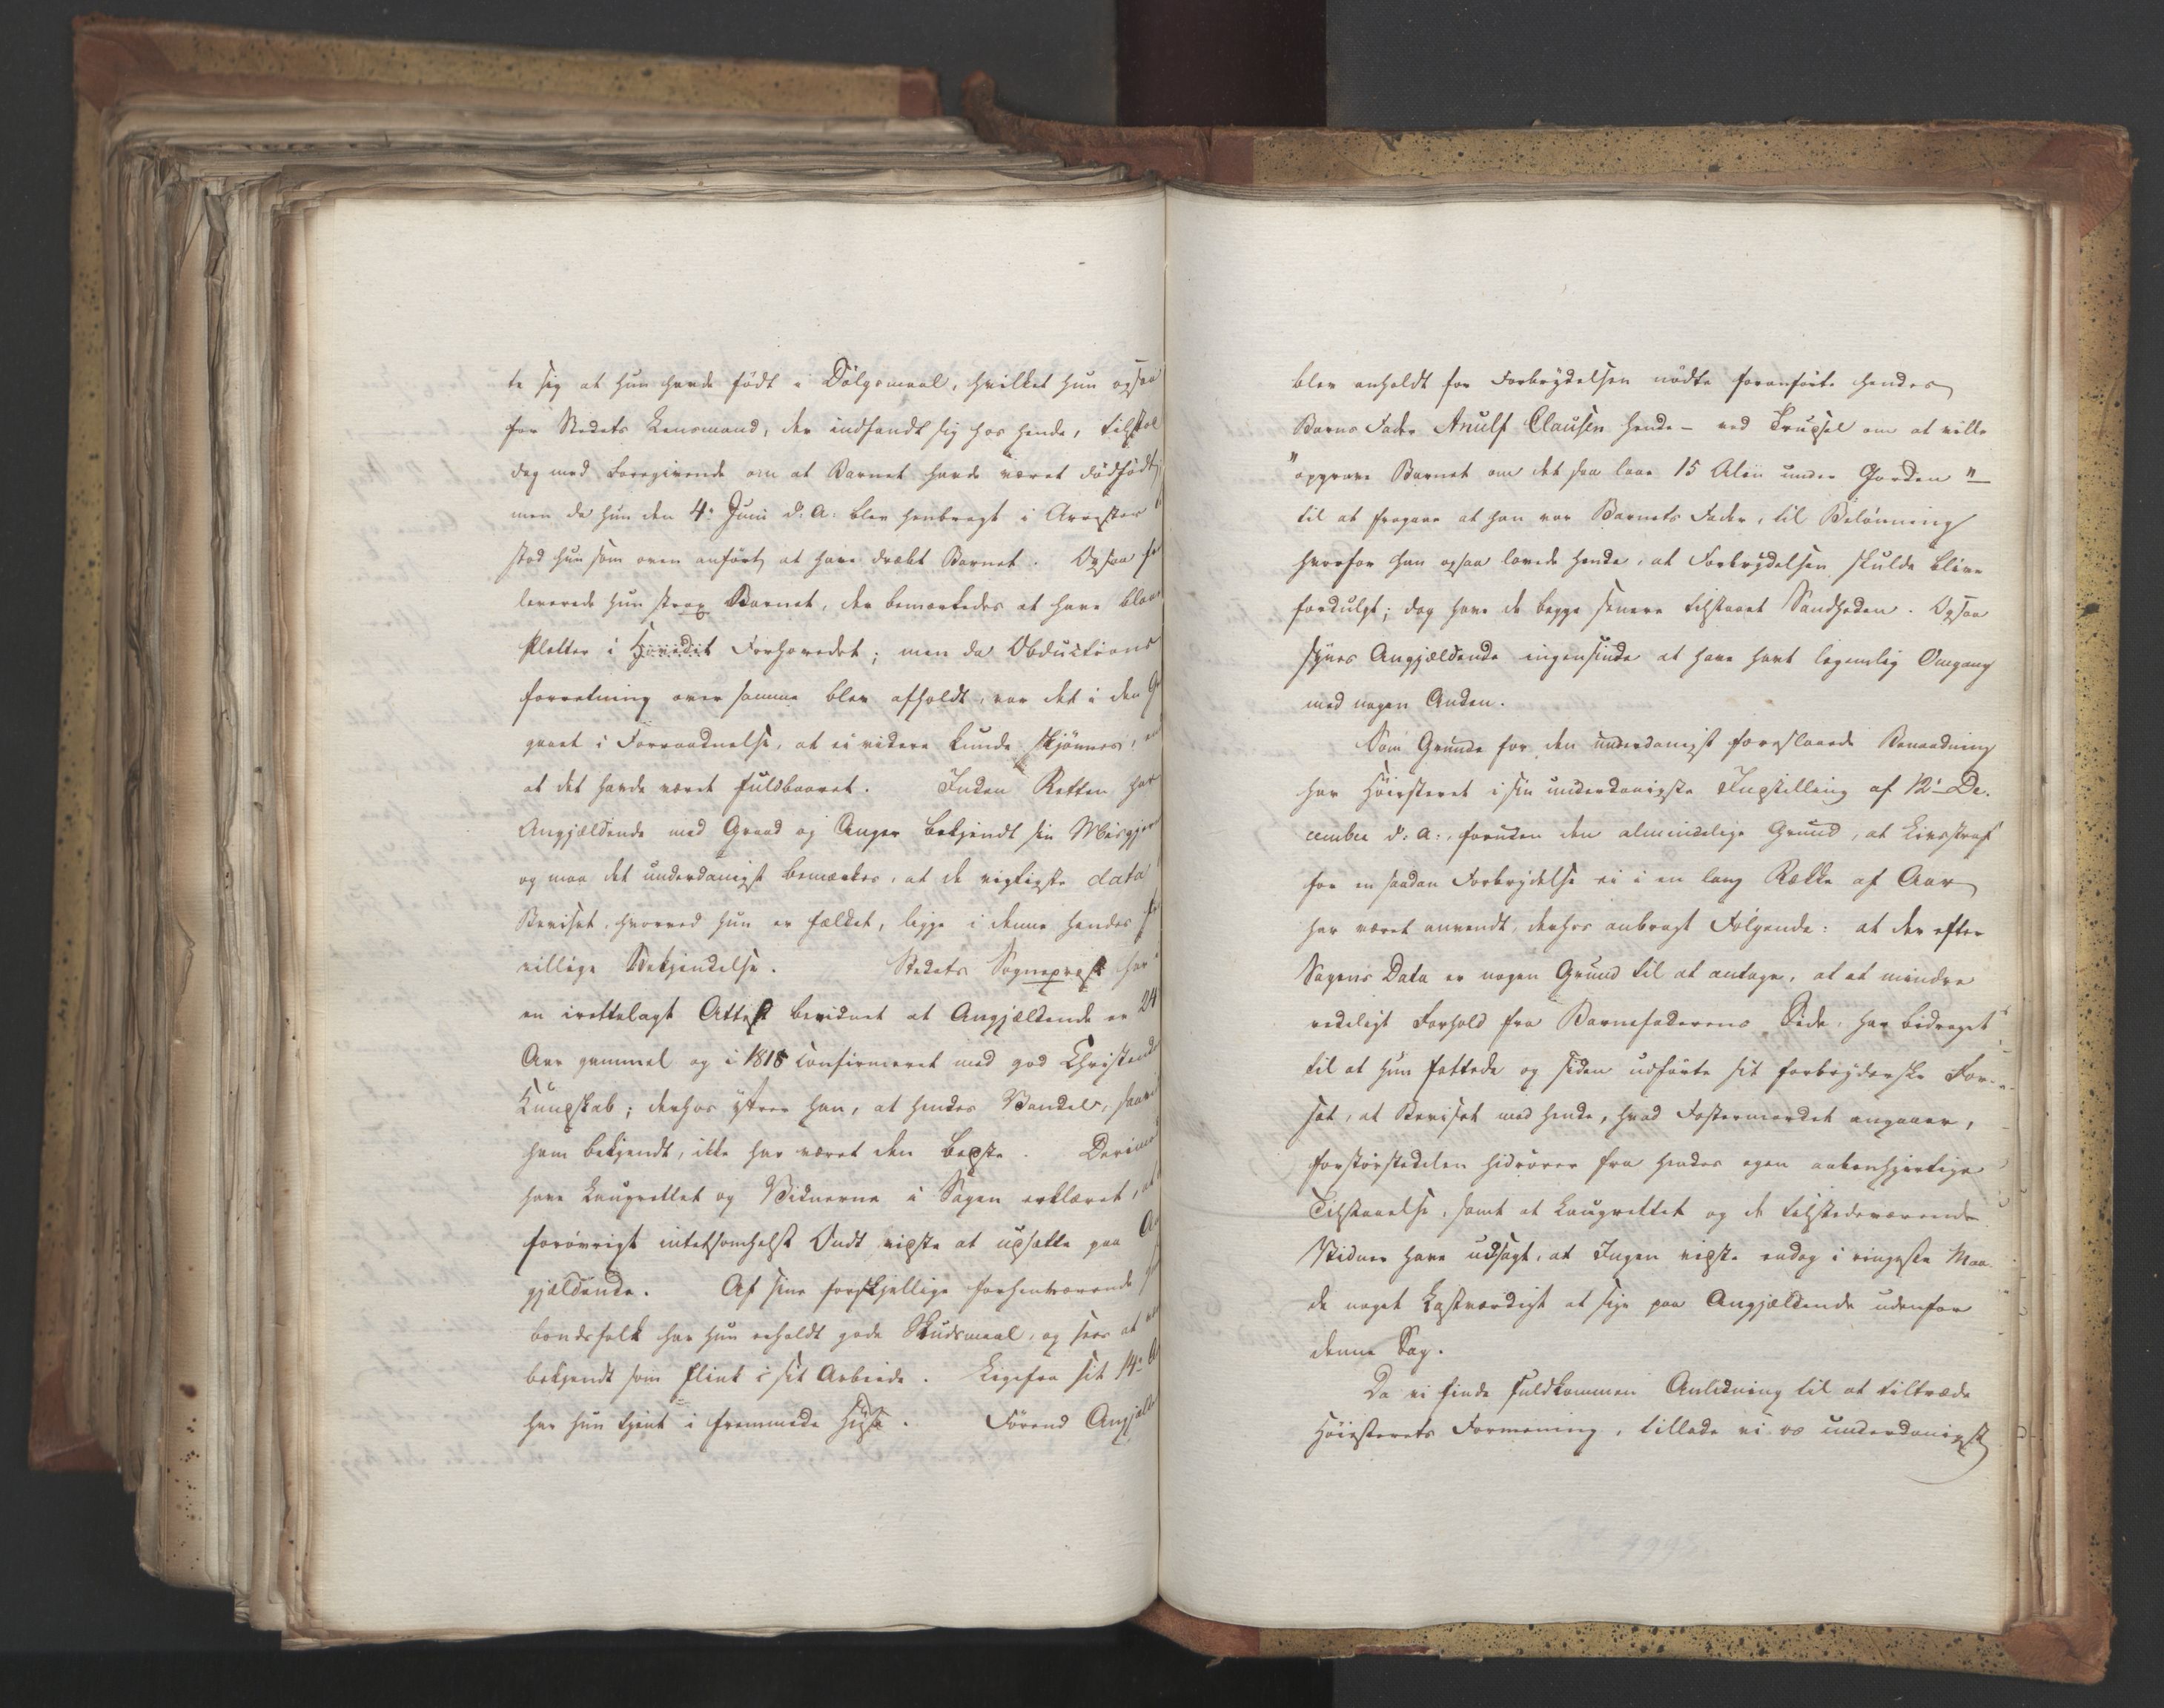 te sig at hun havde födt i Dölgsmaal, hvilket hun ogsaa
for Stedets Lensmand, der indfandt sig hos hende, tilstod
dog med Foregivende om at Barnet havde været dödfödt
men da hun den 4. Juni d. A. blev henbragt i Arresten
stod hun som oven anfört, at have dræbt Barnet. Ogsaa
leverede hun strax Barnet, der bemærkedes at have blaae
Pletter i Forhovedet; men da Obductions
forretning over samme blev afholdt, var det i den
gaaet i Forraadnelse, at ei videre kunde skjönnes,
at det havde været fuldbaaret. Inden Retten har
Angjældende med Graad og Anger bekjendt sin Misgjer
og maa det underdanigst bemærkes, at de vigtigste data
Beviset, hvorved hun er fældet, ligge i denne hendes
villige Bekjendelse. Stedets Sogneprest har
en irettelagt Attest bevidnet at Angjældende er 24
Aar gammel og i 1818 confirmeret med god Christendoms
Kundskab; derhos yttrer han, at hendes Vandel, saavidt
ham bekjendt, ikke har været den bedste. Derimod
have Laugrettet og Vidnerne i Sagen erklæret, at
forövrigt intetsomhelst Ondt vidste at udsætte paa
gjældende. Af sine forskjellige forhenværende
bondsfolk har hun erholdt gode Skudsmaal, og sees at
bekjendt som flink i sit Arbeide. Ligefra sit 14de
har hun tjent i fremmede Huse. Förend Angjælde
blev anholdt for Forbrydelsen nödte foranförte hendes
Barns Fader Anulf Clausen hende – ved Trudsel om at ville
"opgrave Barnet om det saa laae 15 Alen under Jorden" –
til at fragaae at han var Barnets Fader, til Belönning
hvorfor han ogsaa lovede hende, at Forbrydelsen skulde blive
fordulgt; dog have de begge senere tilstaaet Sandheden. Ogsaa
synes Angjældende ingensinde at have havt legemlig Omgang
med nogen Anden.
Som Grunde for den underdanigst foreslaaede Benaadning
har Höiesteret i sin underdanigste Indstilling af 12te De-
cember d. A., foruden den almindelige Grund, at Livsstraf
for en saadan Forbrydelse ei i en lang Række af Aar
har været anvendt, derhos anbragt Fölgende: at der efter
Sagens Data er nogen Grund til at antage, at et mindre
redeligt Forhold fra Barnefaderens Side, har bidraget
til at hun fattede og siden udförte sit forbryderske For-
sæt, at Beviset mod hende, hvad Fostermordet angaaer,
forstörstedelen hidrörer fra hendes egen aabenhjertige
Tilstaaelse, samt at Laugrettet og de tilstedeværende
Vidner have udsagt, at Ingen vidste endog i ringeste Maa-
de noget Lastværdigt at sige paa Angjældende udenfor
denne Sag.
Da vi finde fuldkommen Anledning til at tiltræde
Höiesterets Formening, tillade vi os underdanigst